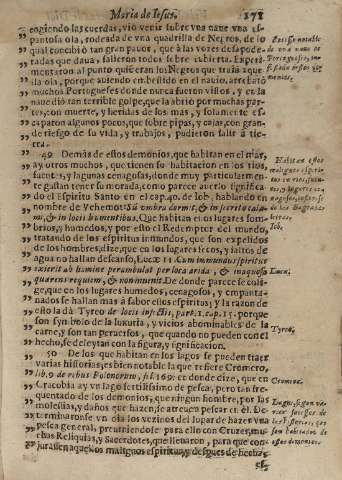 Maria de Iesus. 171
cogiendo las cuerdas, vio venir sobre vna naue vna es-
pantosa ola, rodeada de vna quadrilla de Negros, de lo
qual concibiò tan gran pauor, que à las vozes desapode-
radas que daua, salieron todos sobre cubierta. Experi-
mentaron al punto quiē eran los Negros que traia aque-
lla ola, porque auiendo embestido en el nauio, arrebatò
muchos Portugueses donde nunca fueron vistos, y el na-
uio diò tan terrible golpe, que la abriò por muchas par-
tes, con muerte, y heridas de los mas, y solamente es-
caparon algunos pocos, que sobre pipas, y caxas, con gran-
de riesgo de su vida, y trabajos, pudieron salir à tie-
rra.
49 Demàs de estos demonios, que habitan en el mar,
ay otros muchos, que tienen su habitacion en los rios,
fuentes, y lagunas cenagosas, donde muy particularmen-
te gustan tener su morada, como parece auerlo significa-
do el Espiritu Santo en el cap. 40. de Iob, hablando en
nombre de Vehemot: Sub umbra dormit, & in secreto cala-
mi, & in locis humentibus. Que habitan en los lugares som-
brios, y humedos, y por esto el Redemptor del mundo,
tratando de los espiritus inmundos, que son expelidos
de los hombres, dize, que en los lugares secos, y faltos de
agua no hallan descanso, Lucæ 11. Cum immundus spiritus
exierit ab homine perambulat per loca arida, & inaquosa
quærens requiem, & non inuenit. De donde parece se coli-
ge, que en los lugares humedos, cenagosos, y empanta-
nados se hallan mas à sabor estos espiritus; y la razon de
esto la dà Tyreo de locis infestis, part. 1. cap. 15. porque
son symbolo de la luxuria, y vicios abominables de la
carne, y son tan peruersos, que quando no pueden con el
hecho, se deleytan con la figura, y significacion.
50 De los que habitan en los lagos se pueden traer
varias historias; es bien notable la que refiere Cromero,
lib. 9. de rebus Polonorum, fol. 169. en donde dize, que en
Cracobia ay vn lago fertilissimo de pesca, pero tan fre-
quentado de los demonios, que ningun hombre, por las
molestias, y daños que hazen, se atreue à pescar en èl. De-
terminaronse vn dia los vezinos del lugar de hazer vna
pesca general, preuiniendose para ello con Cruzes, mu-
chas Reliquias, y Sacerdotes, que llenaron, para que con-
jurassen aquellos malignos espiritus, y despues de hecha
Caso notable
de vna naue de
Portugueses,
Habitan estos
malignos espiri-
tus en rios, fuen-
tes, y lugares ce-
nagosos,
Iob.
Lucæ.
Tyreo.
Cromer.